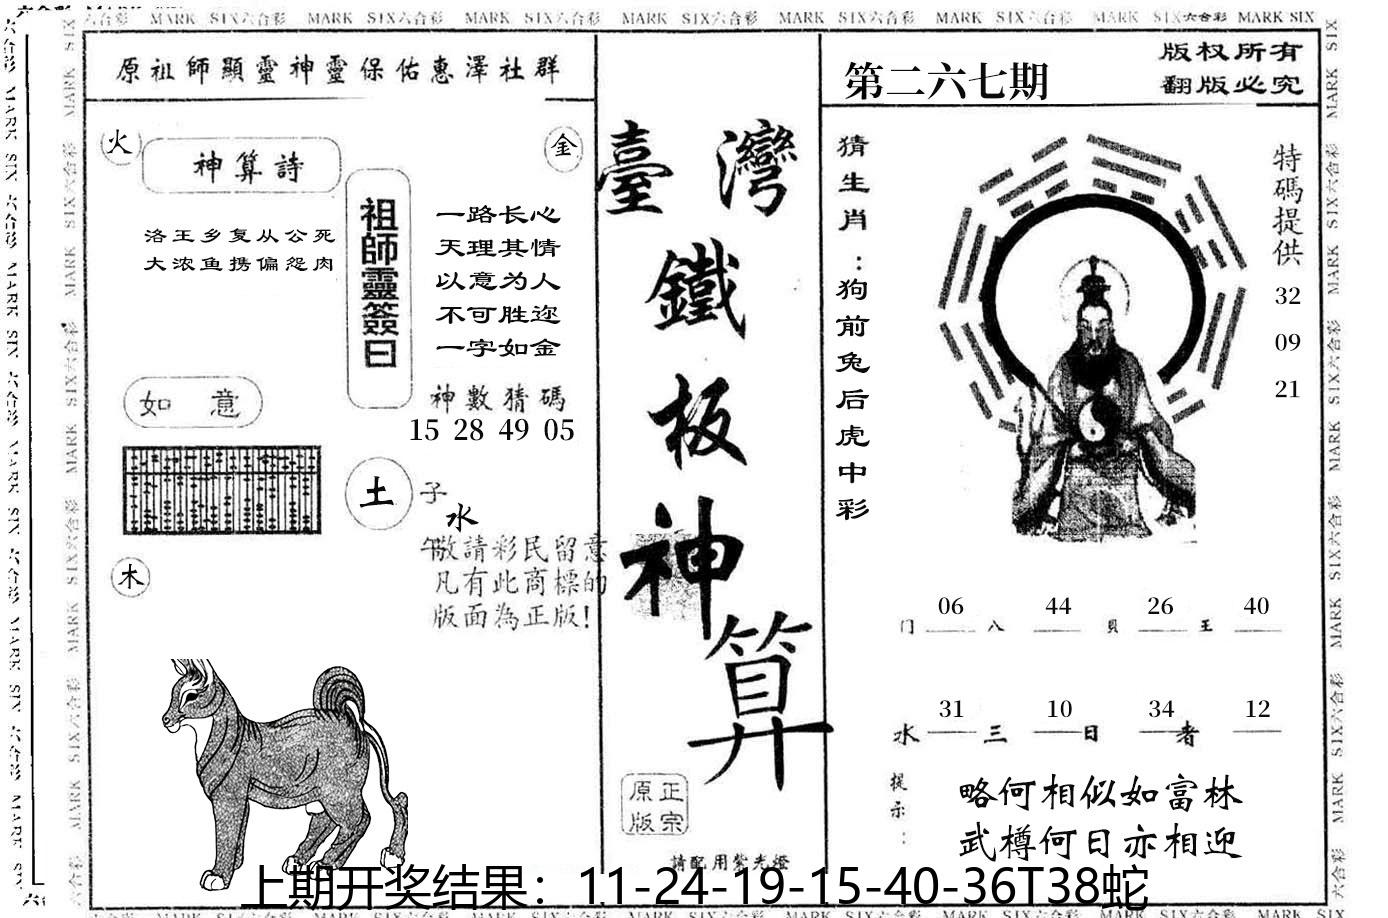 六合彩 MARK SIX六合彩 MARK SIX六合彩 MARK SIX六合彩 MARK SIX六合彩 MARK SIX六合彩 MARK SIX六合彩 MARK SIX六合彩 MARK SIX
原祖師顯靈神靈保佑惠澤社群
火
金
神算詩
洛王乡复从公死
大浓鱼携偏怨肉
祖師靈簽曰
一路长心
天理其情
以意为人
不可胜迩
一字如金
神數猜碼
15 28 49 05
如 意
土
子
水
午
木
敬請彩民留意
凡有此商標的
版面為正版!
臺灣
鐵
板
神
算
正宗
原版
請配用紫光燈
第二六七期
版权所有
翻版必究
猜生肖：狗前兔后虎中彩
特碼提供
32
09
21
06 44 26 40
门 八 貝 王
31 10 34 12
水 三 日 者
提示：
略何相似如富林
武樽何日亦相迎
上期开奖结果：11-24-19-15-40-36T38蛇